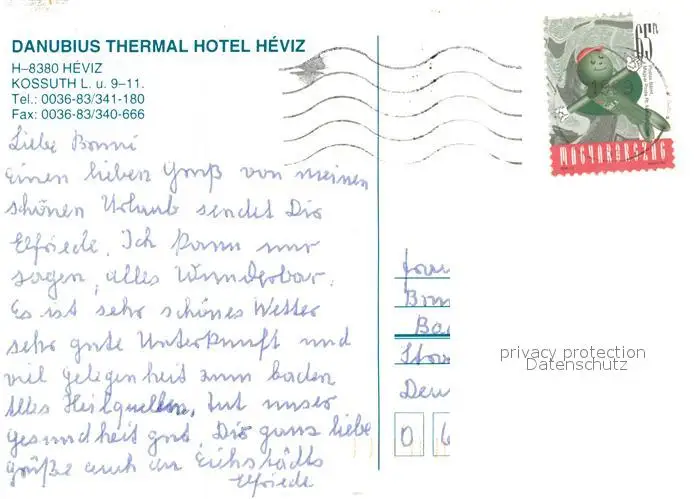 DANUBIUS THERMAL HOTEL HÉVIZ
H–8380 HÉVIZ
KOSSUTH L. u. 9–11.
Tel.: 0036-83/341-180
Fax: 0036-83/340-666
Liebe Bonni
Einen lieben Gruß von meinen
schönen Urlaub sendet Dir
Elfriede. Ich kann nur
sagen, alles Wunderbar.
Es ist sehr schönes Wetter
sehr gute Unterkunft und
viel gelegenheit zum baden
Alles Heilquellen, tut unser
gesundheit gut. Dir ganz liebe
grüße auch an Eichstädts
Elfriede
65 Ft
MAGYARORSZÁG
Frau
Bonn
Ba
Stra
Deu
0 6
privacy protection
Datenschutz